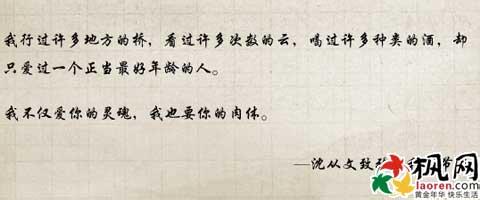 我行过许多地方的桥，看过许多次数的云，喝过许多种类的酒，却
只爱过一个正当最好年龄的人。
我不仅爱你的灵魂，我也要你的肉体。
—沈从文致
枫网
laoren.com
黄金年华 快乐生活